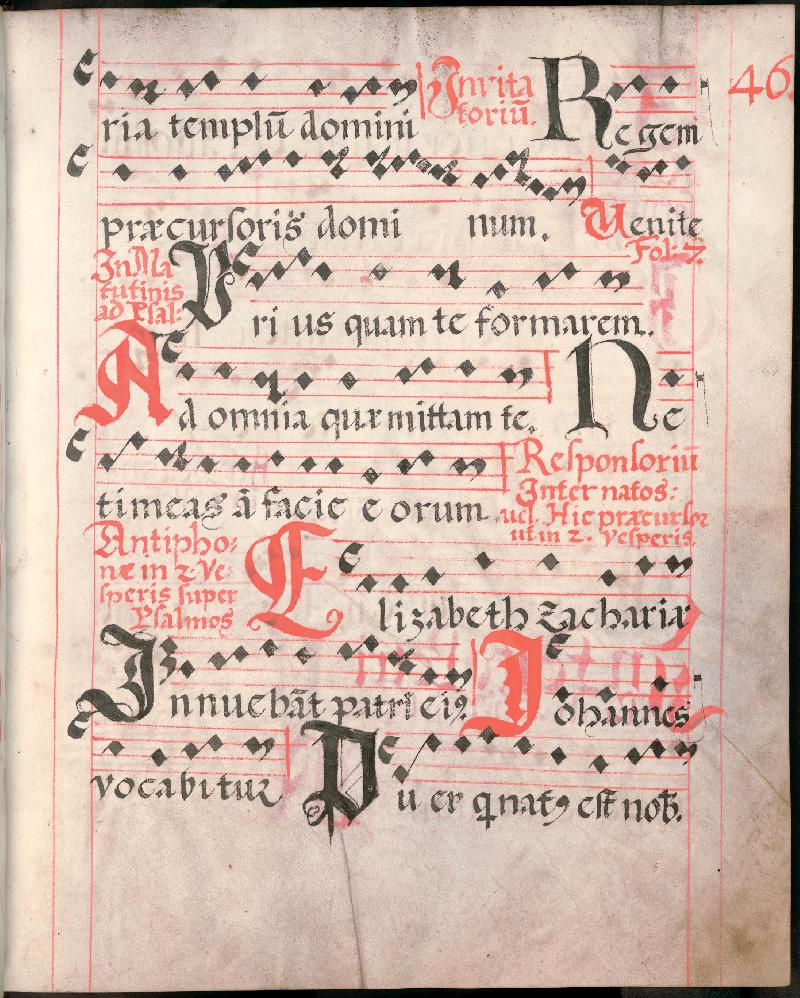 46.
ria templū domini Invita
toriū. Regem
præcursoris domi num. Venite
Fol. 7.
In Ma
tutinis
ad Psal:
Pri us quam te formarem.
Ad omnia quæ mittam te. Ne
timeas ā facie eorum. Responsoriū
Inter natos:
vel Hic præcursor
ut in 2. Vesperis.
Antipho:
næ in 2. Ve:
speris super
Psalmos
Elizabeth Zachariæ
Innuebāt patri ei9. Iohannes
vocabitur Puer q̄ nat9 est nob̄.